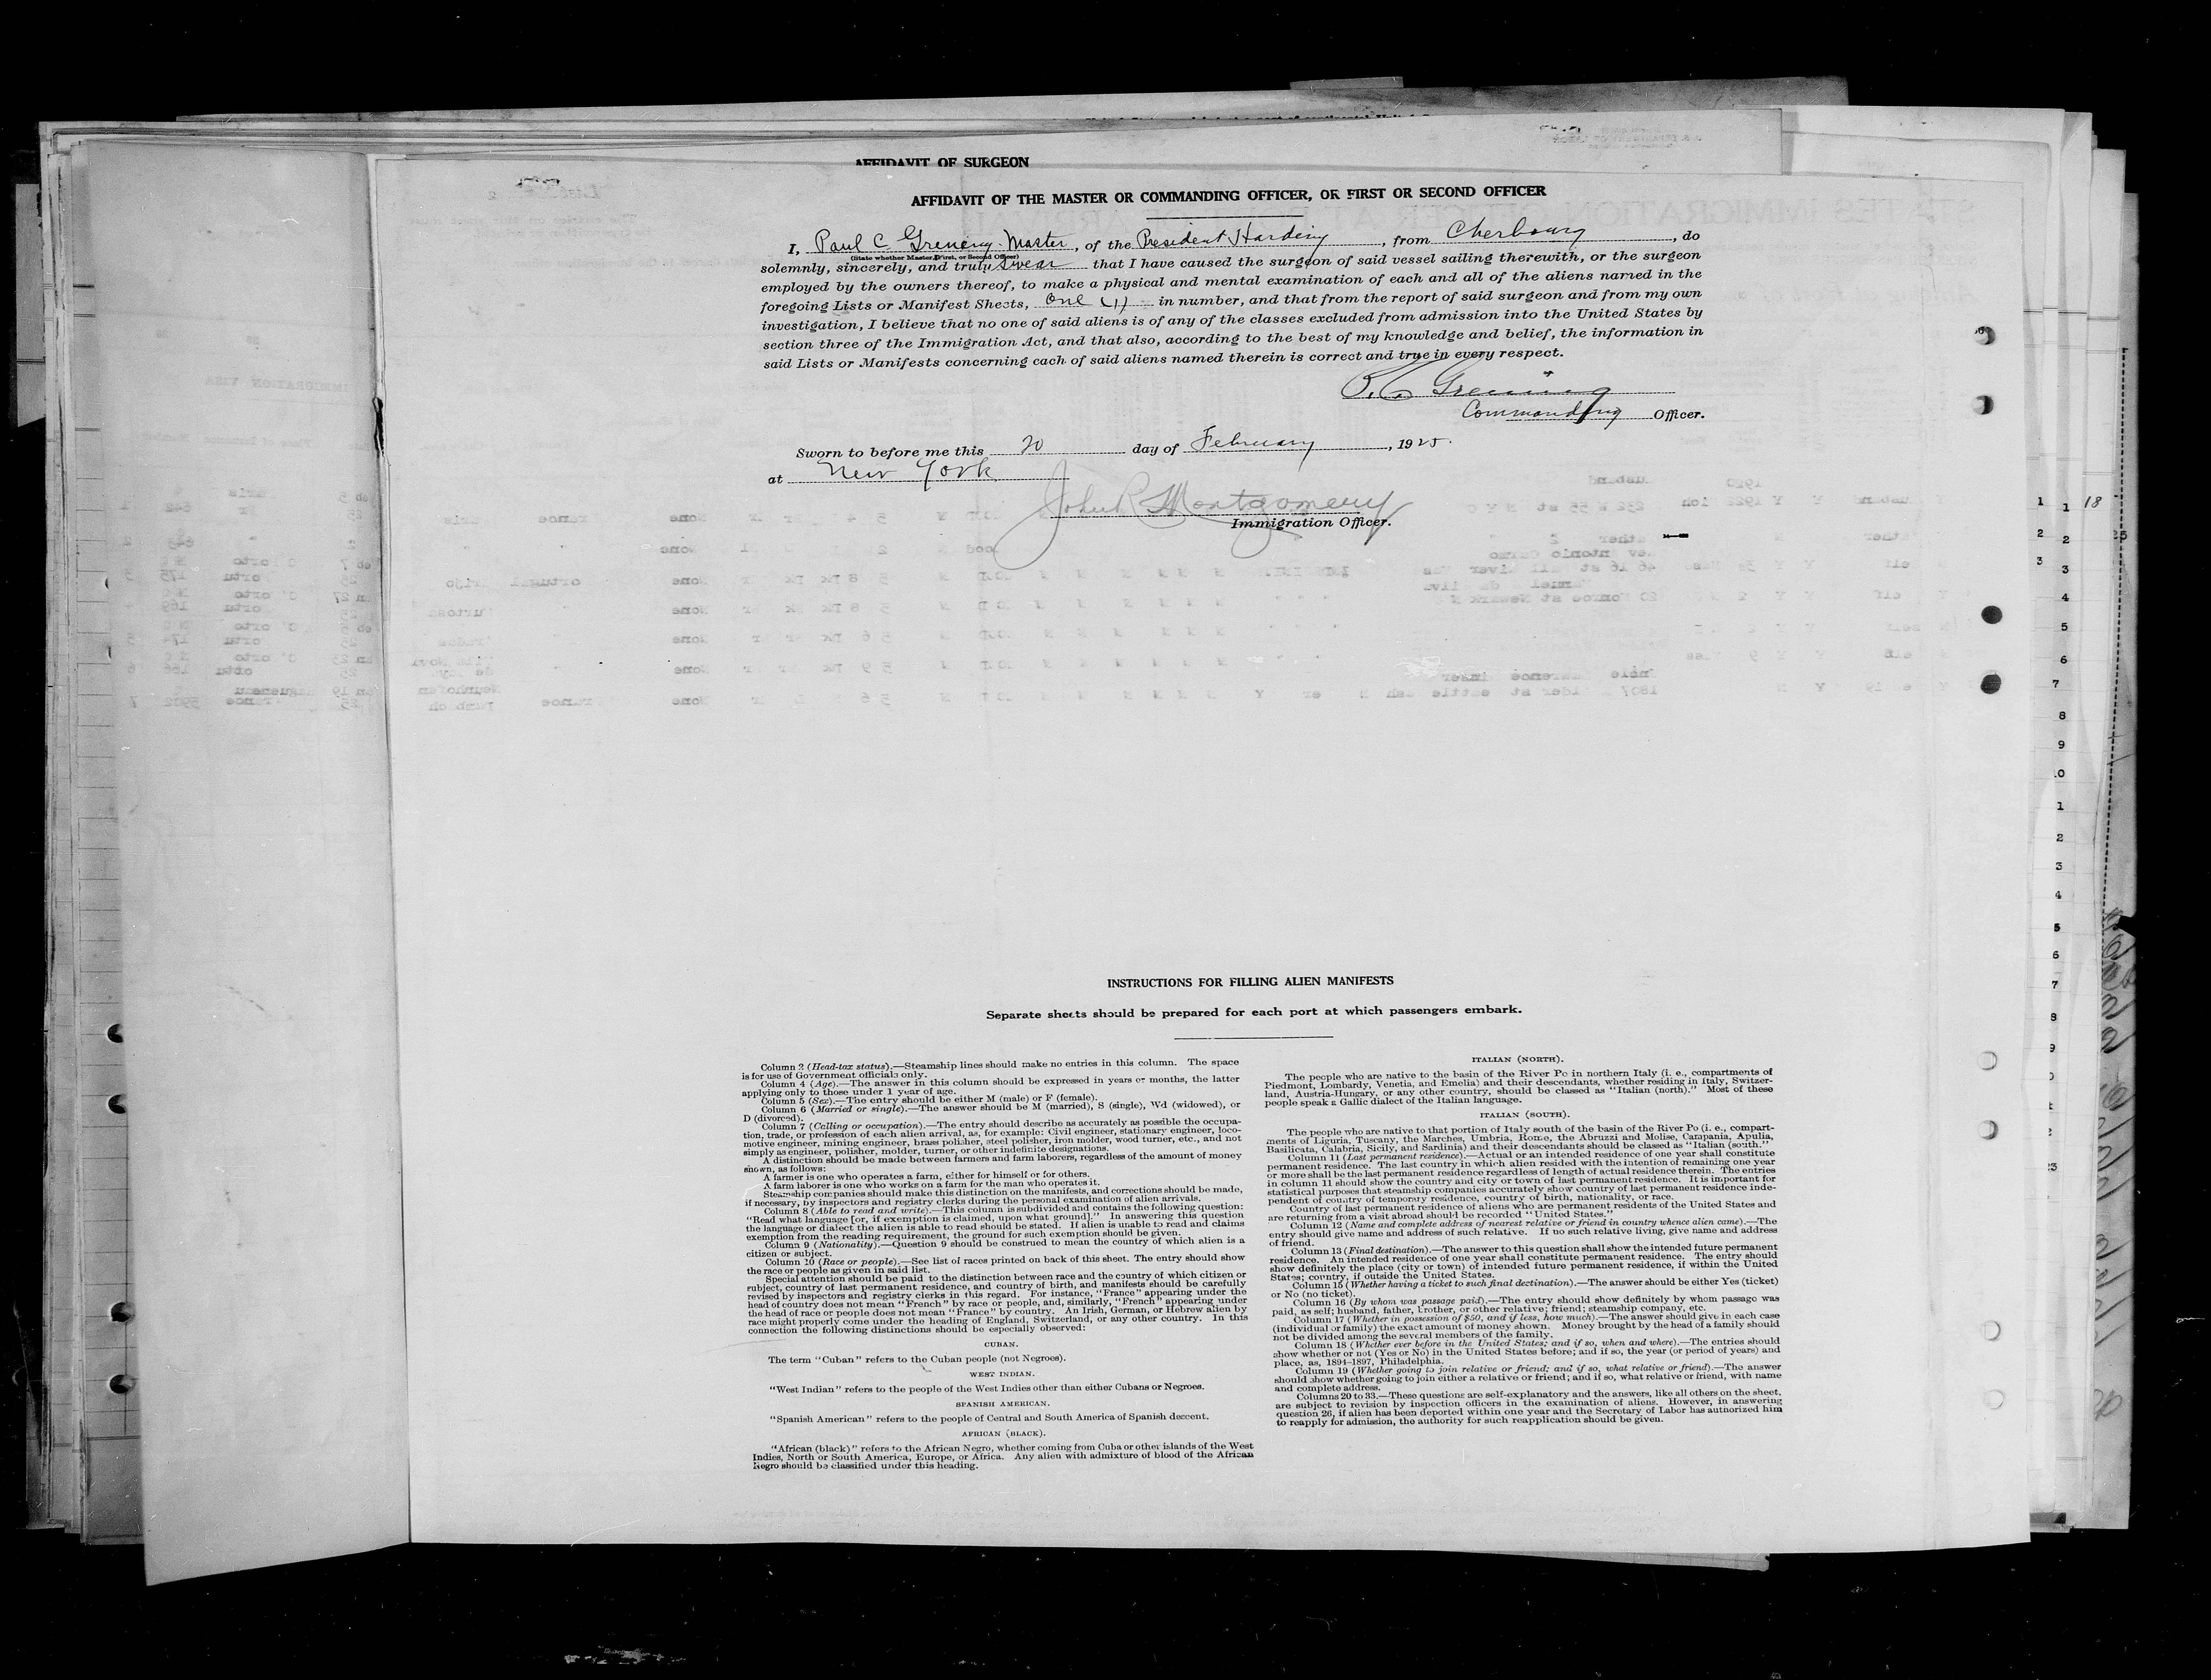 AFFIDAVIT OF SURGEON
AFFIDAVIT OF THE MASTER OR COMMANDING OFFICER, OR FIRST OR SECOND OFFICER
I, Paul C Grening - Master, of the President Harding, from Cherbourg, do
(State whether Master, First, or Second Officer)
solemnly, sincerely, and truly swear that I have caused the surgeon of said vessel sailing therewith, or the surgeon
employed by the owners thereof, to make a physical and mental examination of each and all of the aliens named in the
foregoing Lists or Manifest Sheets, one (1) in number, and that from the report of said surgeon and from my own
investigation, I believe that no one of said aliens is of any of the classes excluded from admission into the United States by
section three of the Immigration Act, and that also, according to the best of my knowledge and belief, the information in
said Lists or Manifests concerning each of said aliens named therein is correct and true in every respect.
P. C Grening
Commanding Officer.
Sworn to before me this 20 day of February, 1925.
at New York
John R Montgomery
Immigration Officer.
INSTRUCTIONS FOR FILLING ALIEN MANIFESTS
Separate sheets should be prepared for each port at which passengers embark.
Column 2 (Head-tax status).—Steamship lines should make no entries in this column. The space
is for use of Government officials only.
Column 4 (Age).—The answer in this column should be expressed in years or months, the latter
applying only to those under 1 year of age.
Column 5 (Sex).—The entry should be either M (male) or F (female).
Column 6 (Married or single).—The answer should be M (married), S (single), Wd (widowed), or
D (divorced).
Column 7 (Calling or occupation).—The entry should describe as accurately as possible the occupa-
tion, trade, or profession of each alien arrival, as, for example: Civil engineer, stationary engineer, loco-
motive engineer, mining engineer, brass polisher, steel polisher, iron molder, wood turner, etc., and not
simply as engineer, polisher, molder, turner, or other indefinite designations.
A distinction should be made between farmers and farm laborers, regardless of the amount of money
shown, as follows:
A farmer is one who operates a farm, either for himself or for others.
A farm laborer is one who works on a farm for the man who operates it.
Steamship companies should make this distinction on the manifests, and corrections should be made,
if necessary, by inspectors and registry clerks during the personal examination of alien arrivals.
Column 8 (Able to read and write).—This column is subdivided and contains the following question:
"Read what language [or, if exemption is claimed, upon what ground]." In answering this question
the language or dialect the alien is able to read should be stated. If alien is unable to read and claims
exemption from the reading requirement, the ground for such exemption should be given.
Column 9 (Nationality).—Question 9 should be construed to mean the country of which alien is a
citizen or subject.
Column 10 (Race or people).—See list of races printed on back of this sheet. The entry should show
the race or people as given in said list.
Special attention should be paid to the distinction between race and the country of which citizen or
subject, country of last permanent residence, and country of birth, and manifests should be carefully
revised by inspectors and registry clerks in this regard. For instance, "France" appearing under the
head of country does not mean "French" by race or people, and, similarly, "French" appearing under
the head of race or people does not mean "France" by country. An Irish, German, or Hebrew alien by
race might properly come under the heading of England, Switzerland, or any other country. In this
connection the following distinctions should be especially observed:
CUBAN.
The term "Cuban" refers to the Cuban people (not Negroes).
WEST INDIAN.
"West Indian" refers to the people of the West Indies other than either Cubans or Negroes.
SPANISH AMERICAN.
"Spanish American" refers to the people of Central and South America of Spanish descent.
AFRICAN (BLACK).
"African (black)" refers to the African Negro, whether coming from Cuba or other islands of the West
Indies, North or South America, Europe, or Africa. Any alien with admixture of blood of the African
Negro should be classified under this heading.
ITALIAN (NORTH).
The people who are native to the basin of the River Po in northern Italy (i. e., compartments of
Piedmont, Lombardy, Venetia, and Emelia) and their descendants, whether residing in Italy, Switzer-
land, Austria-Hungary, or any other country, should be classed as "Italian (north)." Most of these
people speak a Gallic dialect of the Italian language.
ITALIAN (SOUTH).
The people who are native to that portion of Italy south of the basin of the River Po (i. e., compart-
ments of Liguria, Tuscany, the Marches, Umbria, Rome, the Abruzzi and Molise, Campania, Apulia,
Basilicata, Calabria, Sicily, and Sardinia) and their descendants should be classed as "Italian (south."
Column 11 (Last permanent residence).—Actual or an intended residence of one year shall constitute
permanent residence. The last country in which alien resided with the intention of remaining one year
or more shall be the last permanent residence regardless of length of actual residence therein. The entries
in column 11 should show the country and city or town of last permanent residence. It is important for
statistical purposes that steamship companies accurately show country of last permanent residence inde-
pendent of country of temporary residence, country of birth, nationality, or race.
Country of last permanent residence of aliens who are permanent residents of the United States and
are returning from a visit abroad should be recorded "United States."
Column 12 (Name and complete address of nearest relative or friend in country whence alien came).—The
entry should give name and address of such relative. If no such relative living, give name and address
of friend.
Column 13 (Final destination).—The answer to this question shall show the intended future permanent
residence. An intended residence of one year shall constitute permanent residence. The entry should
show definitely the place (city or town) of intended future permanent residence, if within the United
States; country, if outside the United States.
Column 15 (Whether having a ticket to such final destination).—The answer should be either Yes (ticket)
or No (no ticket).
Column 16 (By whom was passage paid).—The entry should show definitely by whom passage was
paid, as self; husband, father, brother, or other relative; friend; steamship company, etc.
Column 17 (Whether in possession of $50, and if less, how much).—The answer should give in each case
(individual or family) the exact amount of money shown. Money brought by the head of a family should
not be divided among the several members of the family.
Column 18 (Whether ever before in the United States; and if so, when and where).—The entries should
show whether or not (Yes or No) in the United States before; and if so, the year (or period of years) and
place, as, 1894-1897, Philadelphia.
Column 19 (Whether going to join relative or friend; and if so, what relative or friend).—The answer
should show whether going to join either a relative or friend; and if so, what relative or friend, with name
and complete address.
Columns 20 to 33.—These questions are self-explanatory and the answers, like all others on the sheet,
are subject to revision by inspection officers in the examination of aliens. However, in answering
question 26, if alien has been deported within one year and the Secretary of Labor has authorized him
to reapply for admission, the authority for such reapplication should be given.